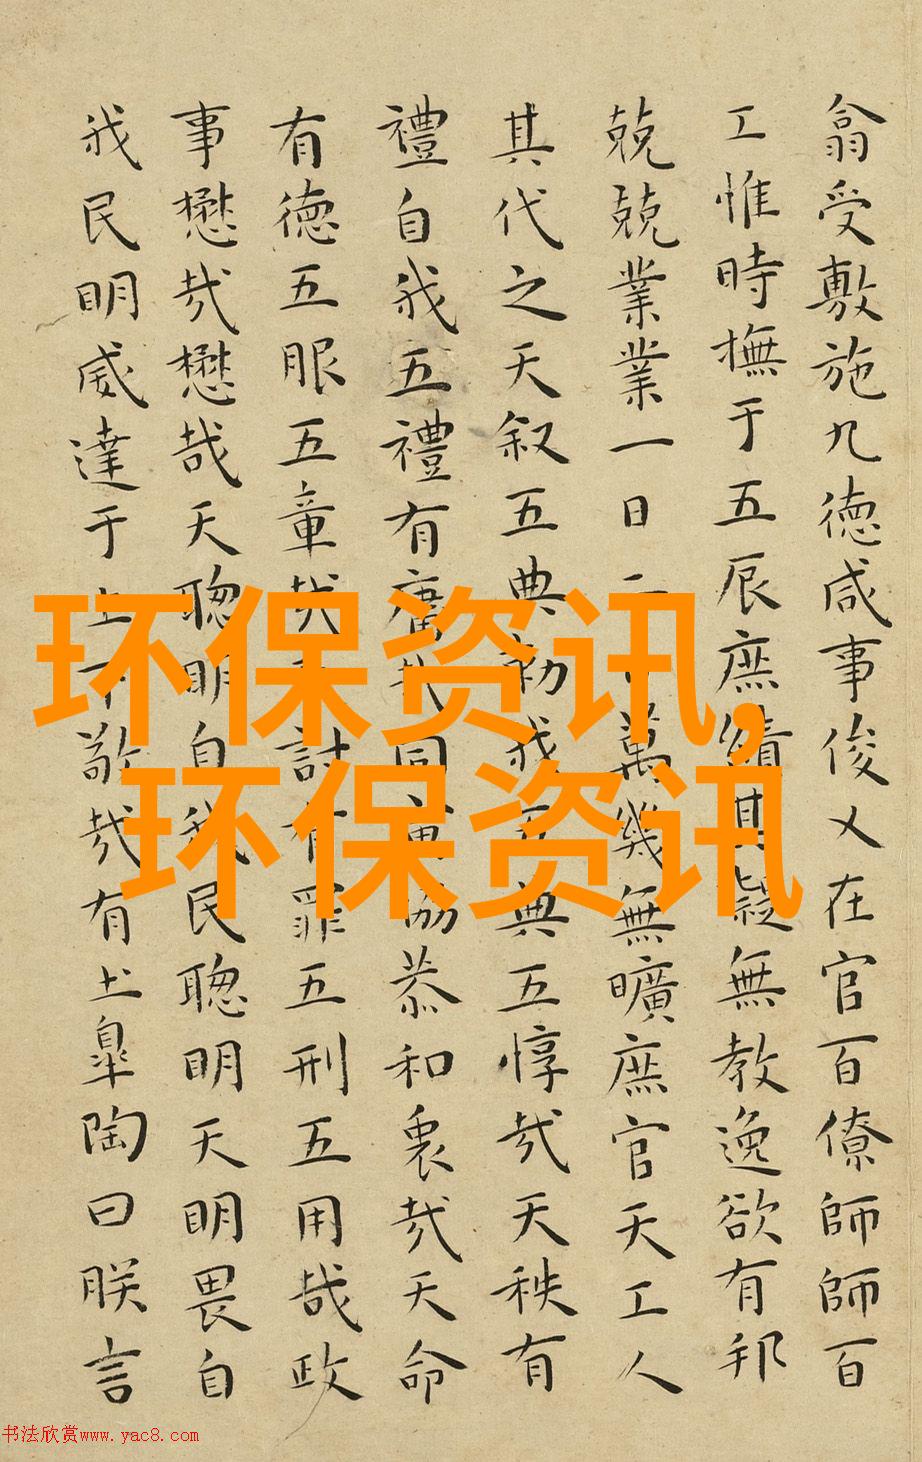 翕受敷施九德咸事俊乂在官百僚師師百
工惟時撫于五辰庶績其凝無教逸欲有邦
兢兢業業一日二日萬幾無曠庶官天工人
其代之天叙五典勑我五典五惇哉天秩有
禮自我五禮有庸哉同寅協恭和衷哉天命
有德五服五章哉天討有罪五刑五用哉政
事懋哉懋哉天聰明自我民聰明天明畏自
我民明威達于上下敬哉有土皋陶曰朕言
环保资讯,
环保资讯
书法欣赏www.yac8.com